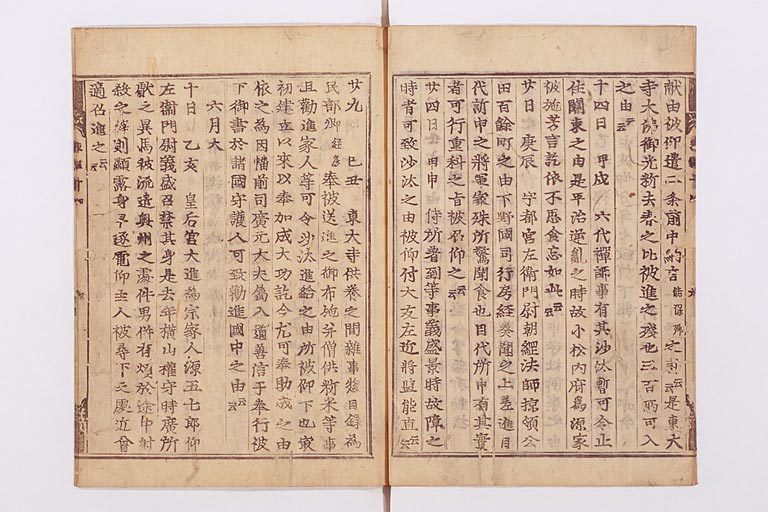 献由被仰遣二条前中納言能保卿之許云云是東大
寺大佛御光新去春之比被進之殘也三百兩可入
之由云云
十四日 甲戌 六代禪師事有其沙汰暫可令止
住關東之由是平治逆亂之時故小松内府爲源家
被施芳言訖依不思食忘如此云云
廿日 庚辰 宇都宮左衛門尉朝經法師掠領公
田百餘町之由下野國司行房經奏聞之上差進目
代訴申之將軍家殊所驚聞食也目代所申有其實
者可行重科之旨被召仰之云云
廿四日 甲申 侍所着到等事義盛景時故障之
時者可致沙汰之由被仰付大友左近將監能直云云
廿九 己丑 東大寺供養之間雜事惣目録爲
民部卿經房奉被送進之御布施并僧供新米等事
且勸進家人等可令沙汰進給之由所被仰下也最
初建立以來以奉加成大功訖今尤可奉助成之由
依之爲因幡前司廣元大夫屬入道善信于奉行被
下御書於諸國守護人可致勸進國中之由云云
六月大
十日 乙亥 皇后宮大進爲宗家人源五七郎仰
左衛門尉義盛召禁其身是去年横山權守時廣所
獻之異馬被流遣奥州之處件男依有煩於途中射
殺之縡則顯露身早逐電仰主人被尋下之處近曾
適召進之云云